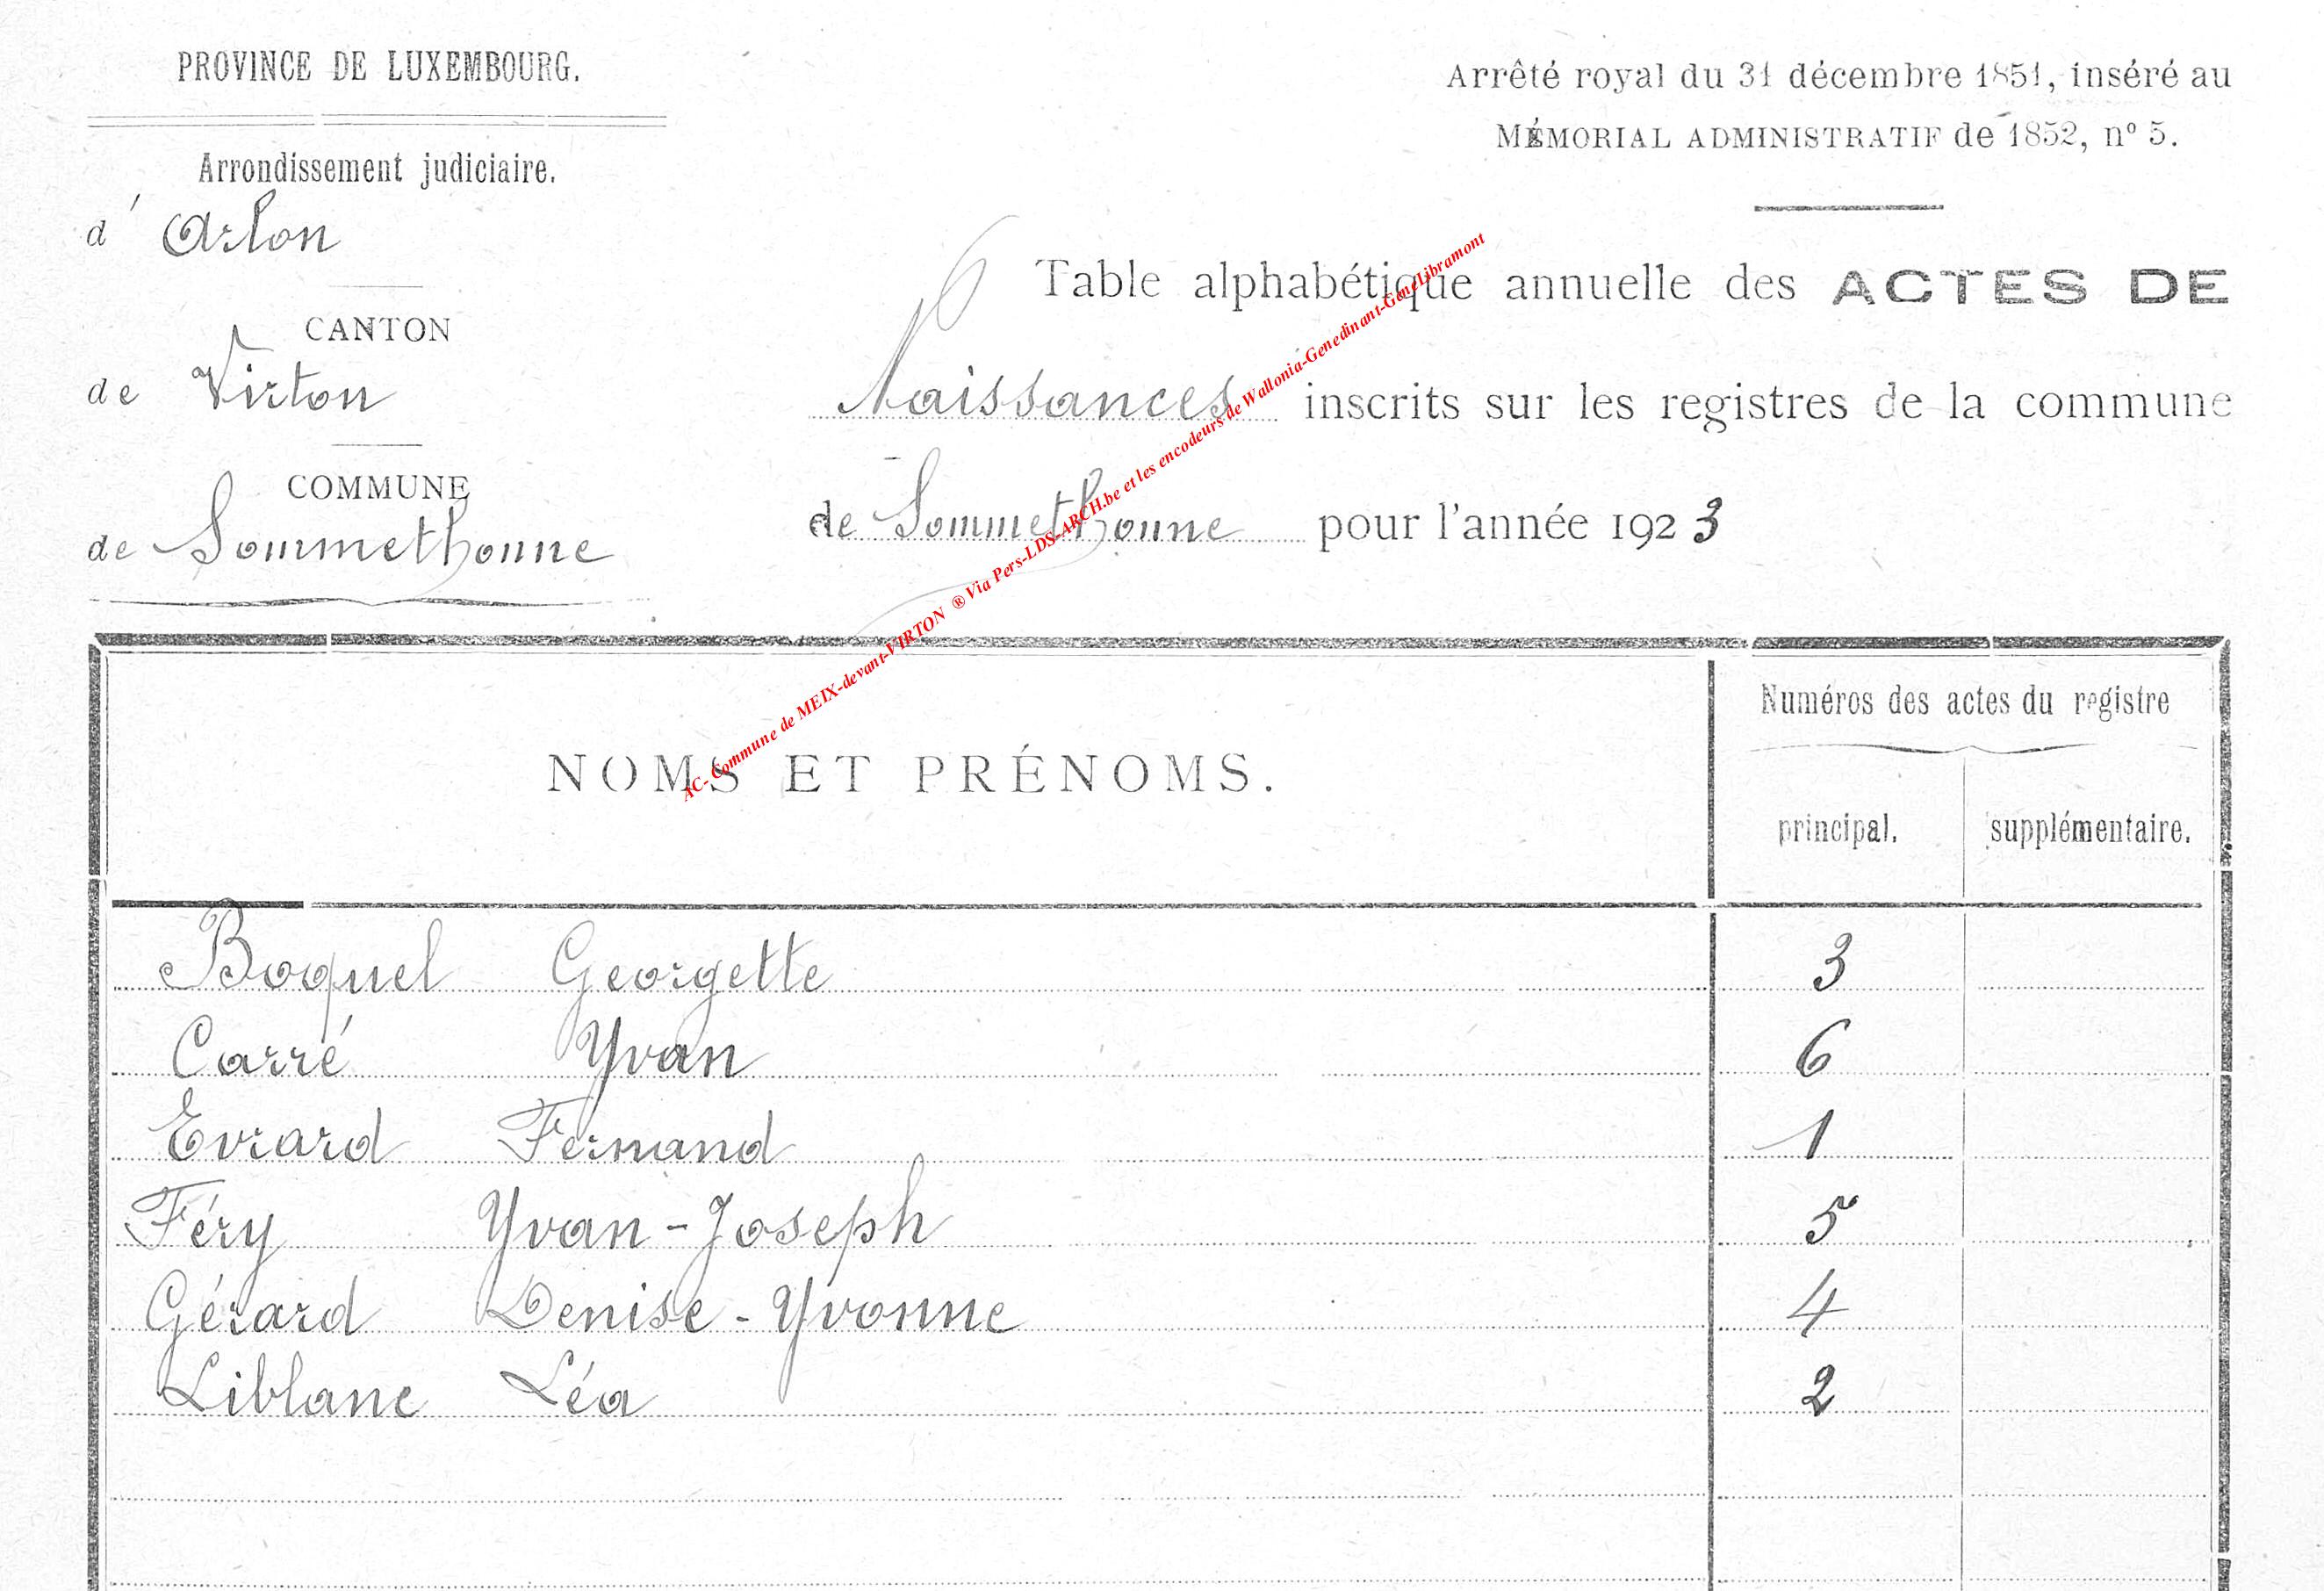 PROVINCE DE LUXEMBOURG.
Arrondissement judiciaire.
d' Arlon
CANTON
de Virton
COMMUNE
de Sommethonne
Arrêté royal du 31 décembre 1851, inséré au
MÉMORIAL ADMINISTRATIF de 1852, nº 5.
Table alphabétique annuelle des ACTES DE
Naissances inscrits sur les registres de la commune
de Sommethonne pour l'année 1923
AC- Commune de MEIX-devant-VIRTON ® Via Pers-LDS-ARCH.be et les encodeurs de Wallonia-Genedinant-GeneLibramont
NOMS ET PRÉNOMS.
Numéros des actes du registre
principal. supplémentaire.
Boquel Georgette 3
Carré Yvan 6
Evrard Fernand 1
Féry Yvan-Joseph 5
Gérard Denise-Yvonne 4
Liblanc Léa 2